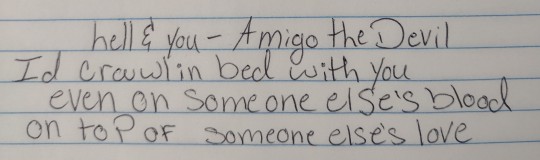 hell & you - Amigo the Devil
Id crawl in bed with you
even on someone else's blood
on top of someone else's love